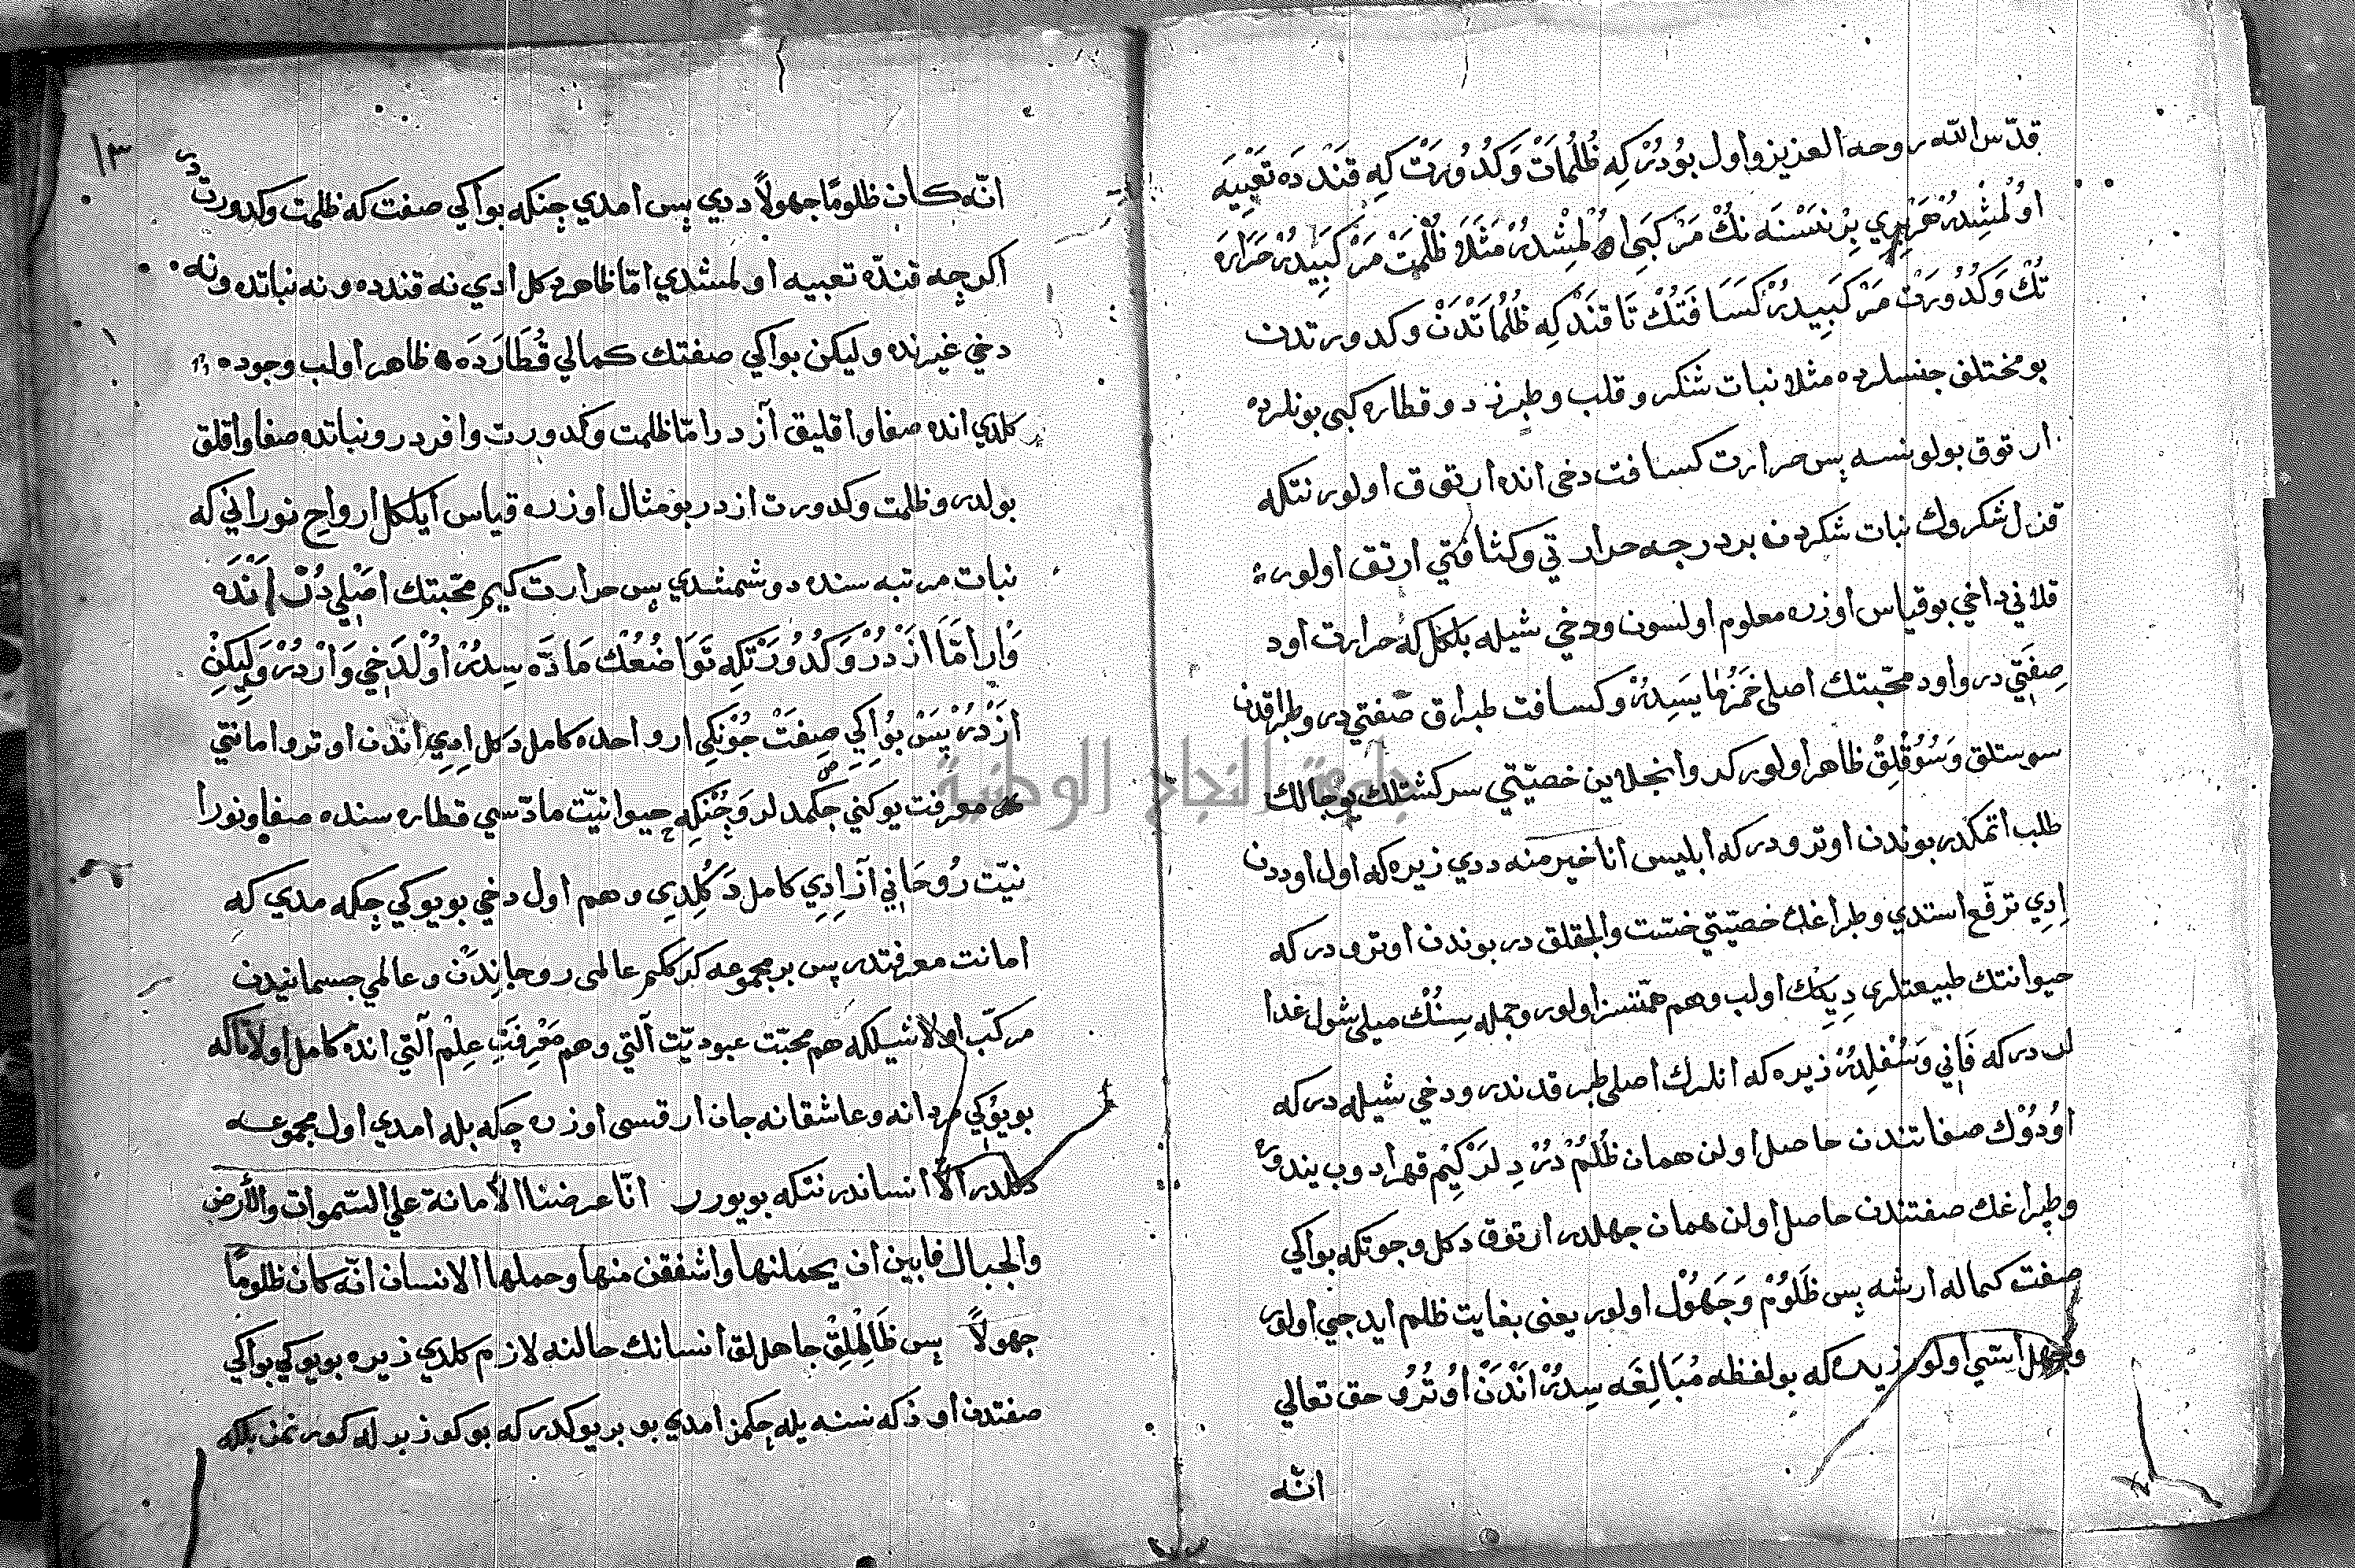 قدّس الله روحه العزيز واول بودُرْ كِه ظُلُمَاتْ وَكُدُورَتْ كِه قَنْدَه تَعْبِيَه
اوُلْمُشِدُرْ هَرْ بِرِي بِرْ نَسْنَه نُكْ مَرْكَبِي اوُلْمِشْدُرْ مَثَلاَ ظُلْمَتْ مَرْكَبِيدُرْ حَرَارَه
تُكْ وَكُدُورَتْ مَرْكَبِيدُرْ كَسَافَتُكْ تَا قَنْدَكِه ظُلُمَاتَدْنْ وكدورتدن
بو مختلف جنسلرده مثلا نبات شكر و قلب و طبرزد و قطاره كبى بونلرده
ارتوق بولونسه پس حرارت كسافت دخى انده ارتوق اولور نتكه
قزل شكروك نبات شكردن بر درجه حرارتي وكثافتي ارتق اولور
قلاني داخي بو قياس اوزره معلوم اولسون ودخي شيله بلكل كه حرارت اود
صِفَتِي در واود محبتك اصلى خَمْرْمَايَسِيدُرْ وكسافت طبراق صفتي در وطبراقدن
سوستلق وَسُوُقْلِقْ ظاهر اولور كد وانجلاين خصيتي سركشتلك يوجالك
طلب اتمكدر بوندن اوترودر كه ابليس انا خير منه ددي زيره كه اول اوددن
اِدِي ترفّع استدي وطبراغك خصيّتي خسّت والجقلق در بوندن اوترودر كه
حيوانتك طبيعتلرى دِيكَك اولب وهم همّتسز اولور وجمله سِنُكْ ميلى شول غدا
لر دركه فَانِي وَسُفْلِدُرْ زيره كه انلرك اصلى طبرقدندر ودخي شيله دركه
اوُدُوْك صفاتندن حاصل اولن همان ظُلُمْ دُرْ دِلَرْ كِيمْ قهر ادوب يندوره
وطپراغك صفتندن حاصل اولن همان جهلدر ارتوق دكل وجوتكه بو اكي
صفت كماله ارشه پس ظَلُومْ وَجَهُوْل اولور يعنى بغايت ظلم ايدجي اولور
وجهل استي اولور زيره كه بو لفظه مُبَالِغَه سِدُرْ اَنْدَنْ اوُتُرُو حق تعالي
انّه
١٣
انّه كان ظلومًا جهولاً ددي پس امدي چنكه بو اكي صفت كه ظلمت وكدورتدر
اكرچه قندّه تعبيه اولمشدي امّا ظاهر دكل ادي نه قندده ونه نباتده ونه
دخي غيرنده وليكن بو اكي صفتك كمالي قُطَارَدَه ظاهر اولب وجوده
كلدي انده صفا واقليق آزدر امّا ظلمت وكدورت وافردر ونباتده صفا واقلق
بولدر وظلمت وكدورت ازدر بو مثال اوزره قياس ايلكل ارواح نوراني كه
نبات مرتبه سنده دوشمشدي پس حرارت كيم محبتك اَصْلِي دُرْ اَنْدَه
وَار امَّا اَزْدُرْ وَكُدُورَتْكِه تَوَاضُعُكْ مَادَّه سِدُرْ اوُلْدَخِي وَارْدُرْ وَلِيكِنْ
اَزْدُرْ پَسْ بُواكِي صِفَتْ جُوْنكِي ارواحده كامل دكل اِدِي اندن اوترو امانتي
معرفت يوكني چكمدلر وَچُنْكِه حيوانيّت مادّسي قطاره سنده صفا ونورا
نيّت رُوحَانِي آزاِدِي كامل دَكُلِدِي وهم اول دخي بو يوكي چكه مدي كه
امانت معرفتدر پس بر مجموعه كركدركيم عالمى روحانِيدَن وعالمي جسمانيدن
مركّب اولا شيلكه هم محبّت عبوديّت آلتي وهم مَعْرِفَتِ عِلْم آلتي انده كامل اولا تاكه
بو يُوكي مردانه وعاشقانه جان ارقسى اوزره چكه بله امدي اول مجموعه
دكلدر الاّ انساندر نتكه بويورر انّا عرضنا الأمانة على السّموات والأرض
والجبال فابين ان يحملنها واشفقن منها وحملها الانسان انّه كان ظلومًا
جهولاً پس ظَالِمْلِقْ جاهللق انسانك حالنه لازم كلدي زيره بو يوكي بو اكي
صفتدن اوزكه نسنه يله چكمن امدي بو بر يوكدر كه بو كوزيرله كورنمز بلكه